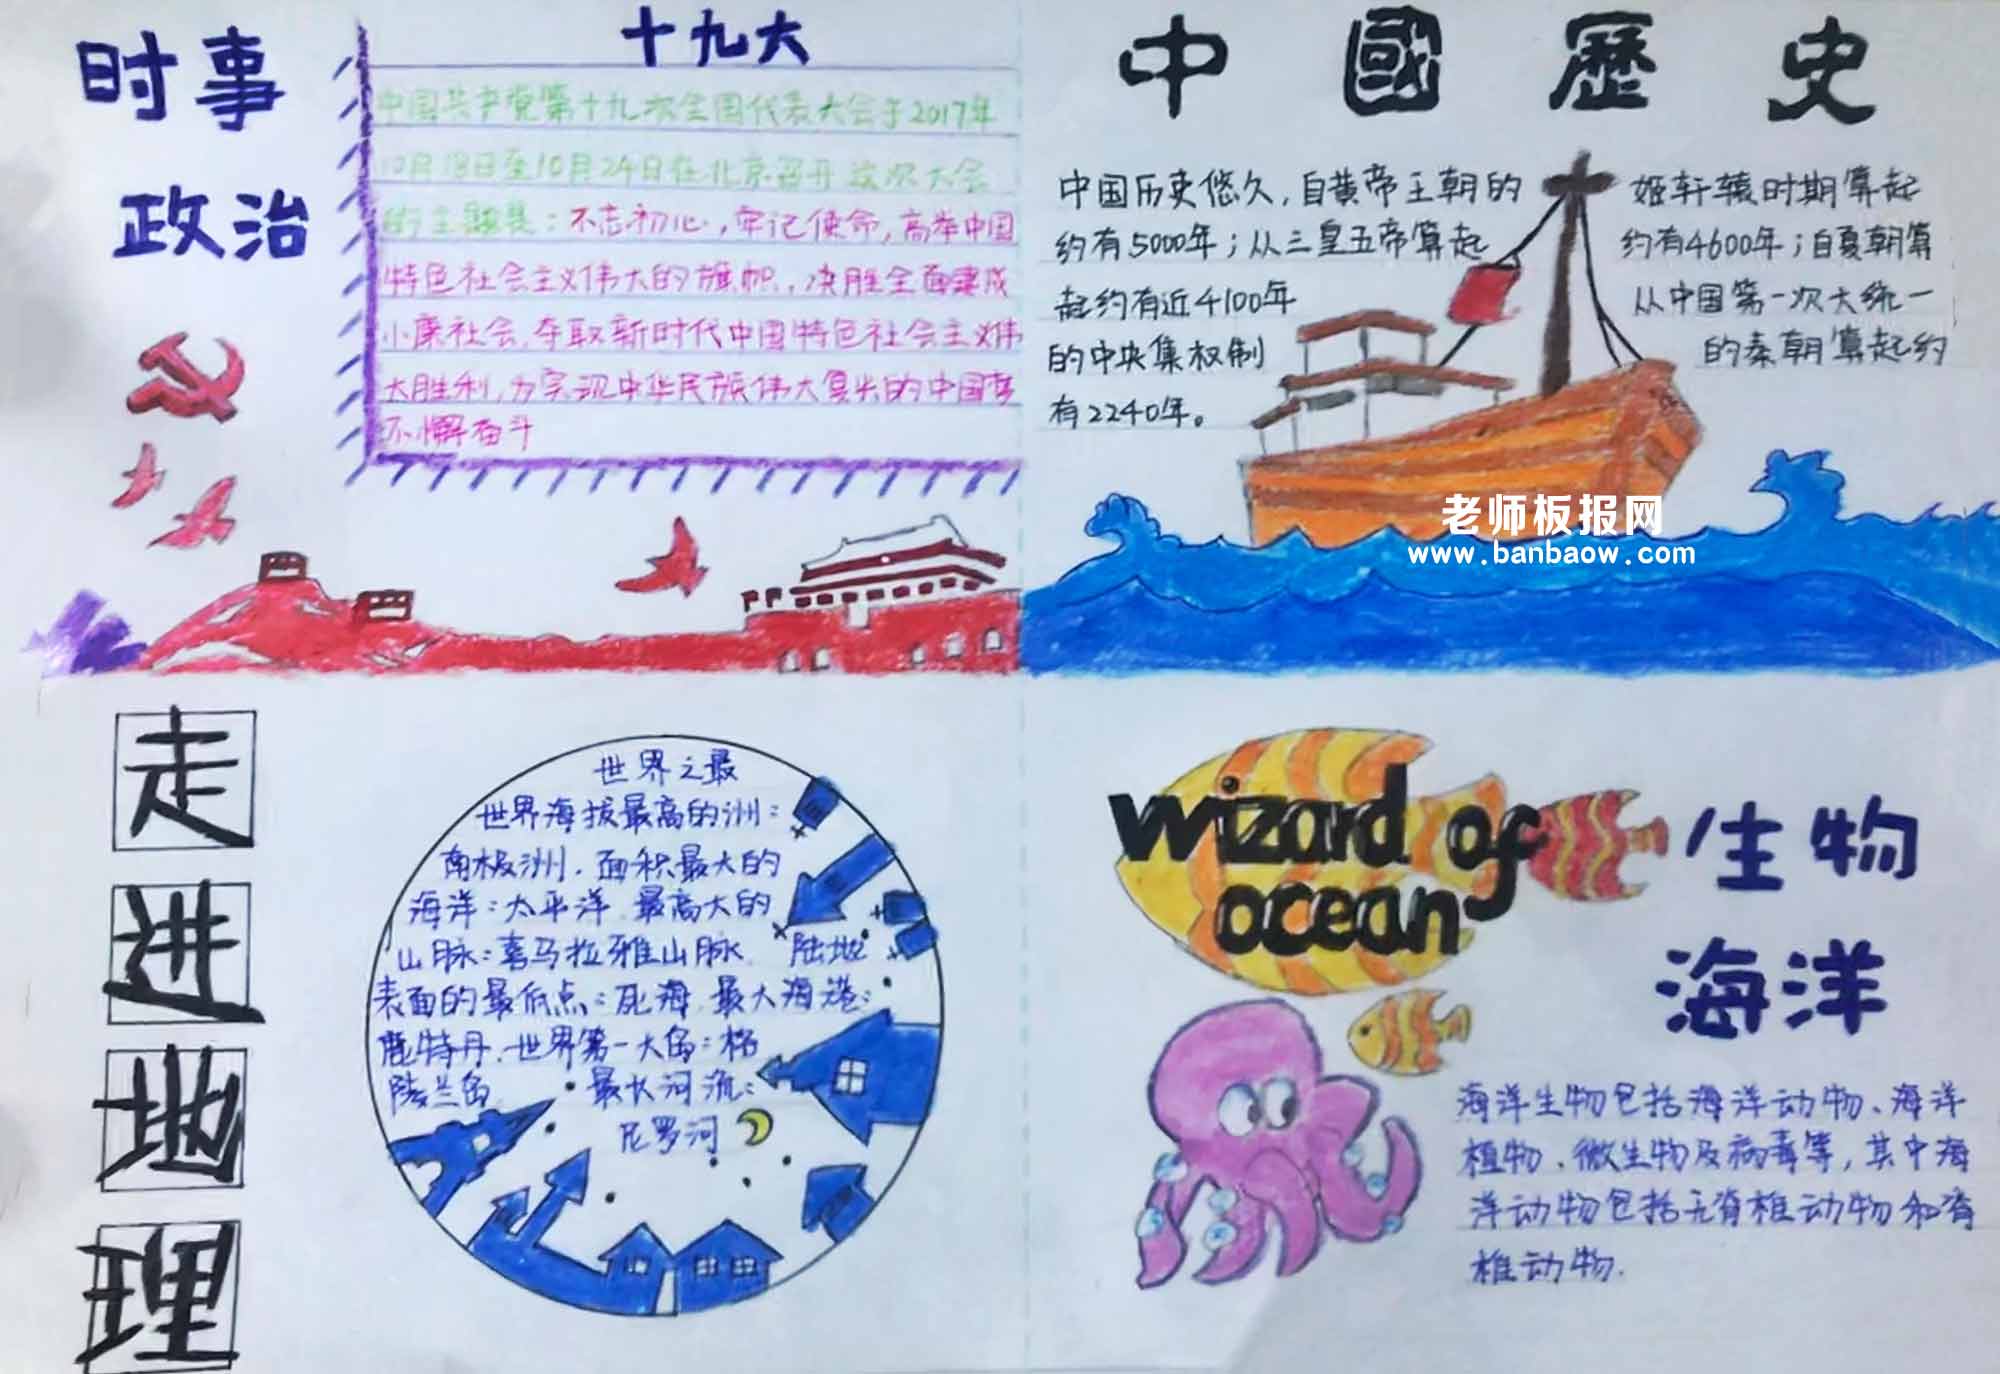 时事
政治
十九大
中国共产党第十九次全国代表大会于2017年
10月18日至10月24日在北京召开这次大会
的主题是：不忘初心，牢记使命，高举中国
特色社会主义伟大的旗帜，决胜全面建成
小康社会，夺取新时代中国特色社会主义伟
大胜利，为实现中华民族伟大复兴的中国梦
不懈奋斗
中國歷史
中国历史悠久，自黄帝王朝的 姬轩辕时期算起
约有5000年；从三皇五帝算起 约有4600年；自夏朝算
起约有近4100年 从中国第一次大统一
的中央集权制 的秦朝算起约
有2240年。
老师板报网
www.banbaow.com
走
进
地
理
世界之最
世界海拔最高的洲：
南极洲．面积最大的
海洋：太平洋．最高大的
山脉：喜马拉雅山脉． 陆地
表面的最低点：死海．最大海港：
鹿特丹．世界第一大岛：格
陵兰岛 最长河流：
尼罗河
wizard of
ocean
生物
海洋
海洋生物包括海洋动物、海洋
植物、微生物及病毒等，其中海
洋动物包括无脊椎动物和脊
椎动物．